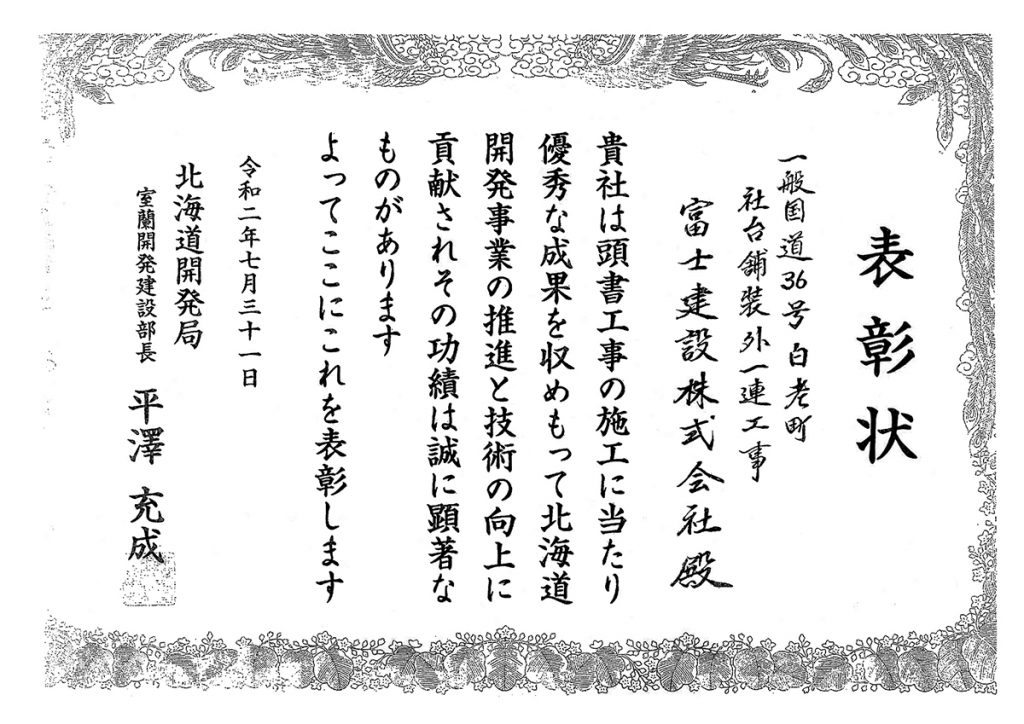 表彰状
一般国道36号白老町
社台舗装外一連工事
富士建設株式会社殿
貴社は頭書工事の施工に当たり
優秀な成果を収めもって北海道
開発事業の推進と技術の向上に
貢献されその功績は誠に顕著な
ものがあります
よってここにこれを表彰します
令和二年七月三十一日
北海道開発局
室蘭開発建設部長
平澤 充成